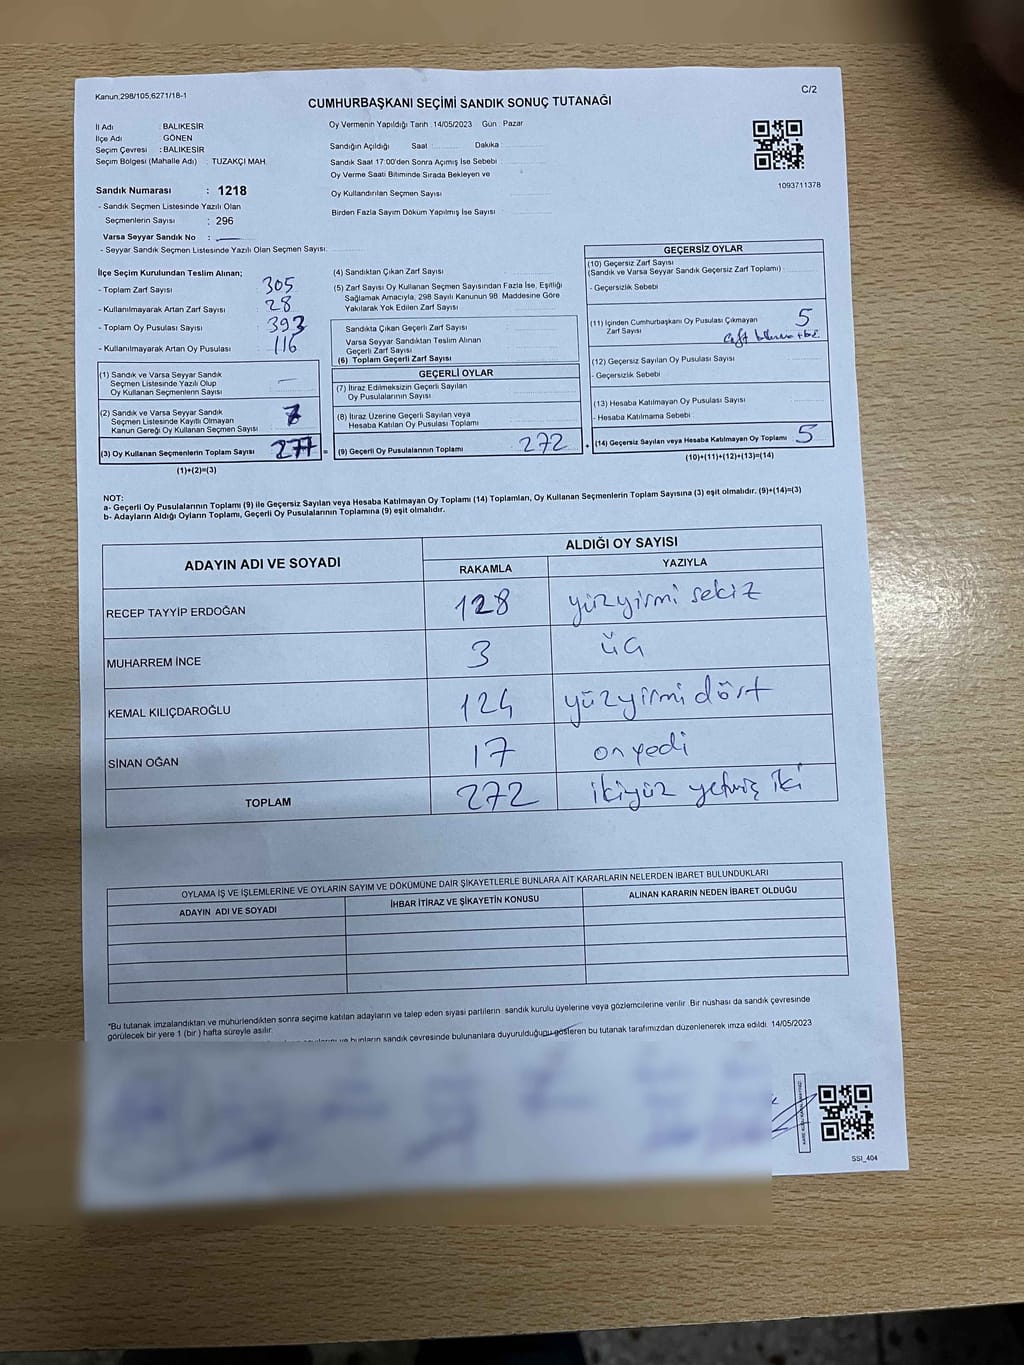 Kanun:298/105,6271/18-1
C/2
CUMHURBAŞKANI SEÇİMİ SANDIK SONUÇ TUTANAĞI
İl Adı : BALIKESİR
İlçe Adı : GÖNEN
Seçim Çevresi : BALIKESİR
Seçim Bölgesi (Mahalle Adı) : TUZAKÇI MAH.
Sandık Numarası : 1218
- Sandık Seçmen Listesinde Yazılı Olan
Seçmenlerin Sayısı : 296
Varsa Seyyar Sandık No :
- Seyyar Sandık Seçmen Listesinde Yazılı Olan Seçmen Sayısı:
Oy Vermenin Yapıldığı Tarih : 14/05/2023 Gün : Pazar
Sandığın Açıldığı Saat Dakika
Sandık Saat 17:00'den Sonra Açımış İse Sebebi
Oy Verme Saati Bitiminde Sırada Bekleyen ve
Oy Kullandırılan Seçmen Sayısı
Birden Fazla Sayım Döküm Yapılmış İse Sayısı
1093711378
İlçe Seçim Kurulundan Teslim Alınan;
- Toplam Zarf Sayısı 305
- Kullanılmayarak Artan Zarf Sayısı 28
- Toplam Oy Pusulası Sayısı 393
- Kullanılmayarak Artan Oy Pusulası 116
(1) Sandık ve Varsa Seyyar Sandık
Seçmen Listesinde Yazılı Olup
Oy Kullanan Seçmenlerin Sayısı —
(2) Sandık ve Varsa Seyyar Sandık
Seçmen Listesinde Kayıtlı Olmayan
Kanun Gereği Oy Kullanan Seçmen Sayısı
(3) Oy Kullanan Seçmenlerin Toplam Sayısı 277 =
(1)+(2)=(3)
(4) Sandıktan Çıkan Zarf Sayısı
(5) Zarf Sayısı Oy Kullanan Seçmen Sayısından Fazla İse, Eşitliği
Sağlamak Amacıyla, 298 Sayılı Kanunun 98. Maddesine Göre
Yakılarak Yok Edilen Zarf Sayısı
Sandıkta Çıkan Geçerli Zarf Sayısı
Varsa Seyyar Sandıktan Teslim Alınan
Geçerli Zarf Sayısı
(6) Toplam Geçerli Zarf Sayısı
GEÇERLİ OYLAR
(7) İtiraz Edilmeksizin Geçerli Sayılan
Oy Pusulalarının Sayısı
(8) İtiraz Üzerine Geçerli Sayılan veya
Hesaba Katılan Oy Pusulası Toplamı
(9) Geçerli Oy Pusulalarının Toplamı 272 +
GEÇERSİZ OYLAR
(10) Geçersiz Zarf Sayısı
(Sandık ve Varsa Seyyar Sandık Geçersiz Zarf Toplamı)
- Geçersizlik Sebebi
(11) İçinden Cumhurbaşkanı Oy Pusulası Çıkmayan
Zarf Sayısı 5
(12) Geçersiz Sayılan Oy Pusulası Sayısı
- Geçersizlik Sebebi
(13) Hesaba Katılmayan Oy Pusulası Sayısı
- Hesaba Katılmama Sebebi
(14) Geçersiz Sayılan veya Hesaba Katılmayan Oy Toplamı 5
(10)+(11)+(12)+(13)=(14)
NOT:
a- Geçerli Oy Pusulalarının Toplamı (9) ile Geçersiz Sayılan veya Hesaba Katılmayan Oy Toplamı (14) Toplamları, Oy Kullanan Seçmenlerin Toplam Sayısına (3) eşit olmalıdır. (9)+(14)=(3)
b- Adayların Aldığı Oyların Toplamı, Geçerli Oy Pusulalarının Toplamına (9) eşit olmalıdır.
ADAYIN ADI VE SOYADI
ALDIĞI OY SAYISI
RAKAMLA YAZIYLA
RECEP TAYYİP ERDOĞAN 128 yüzyirmi sekiz
MUHARREM İNCE 3 üç
KEMAL KILIÇDAROĞLU 124 yüzyirmi dört
SİNAN OĞAN 17 on yedi
TOPLAM 272 ikiyüz yetmiş iki
OYLAMA İŞ VE İŞLEMLERİNE VE OYLARIN SAYIM VE DÖKÜMÜNE DAİR ŞİKAYETLERLE BUNLARA AİT KARARLARIN NELERDEN İBARET BULUNDUKLARI
ADAYIN ADI VE SOYADI İHBAR İTİRAZ VE ŞİKAYETİN KONUSU ALINAN KARARIN NEDEN İBARET OLDUĞU
"Bu tutanak imzalandıktan ve mühürlendikten sonra seçime katılan adayların ve talep eden siyasi partilerin sandık kurulu üyelerine veya gözlemcilerine verilir. Bir nüshası da sandık çevresinde
görülecek bir yere 1 (bir ) hafta süreyle asılır.
ve bunların sandık çevresinde bulunanlara duyurulduğunu gösteren bu tutanak tarafımızdan düzenlenerek imza edildi. 14/05/2023
SSI_404